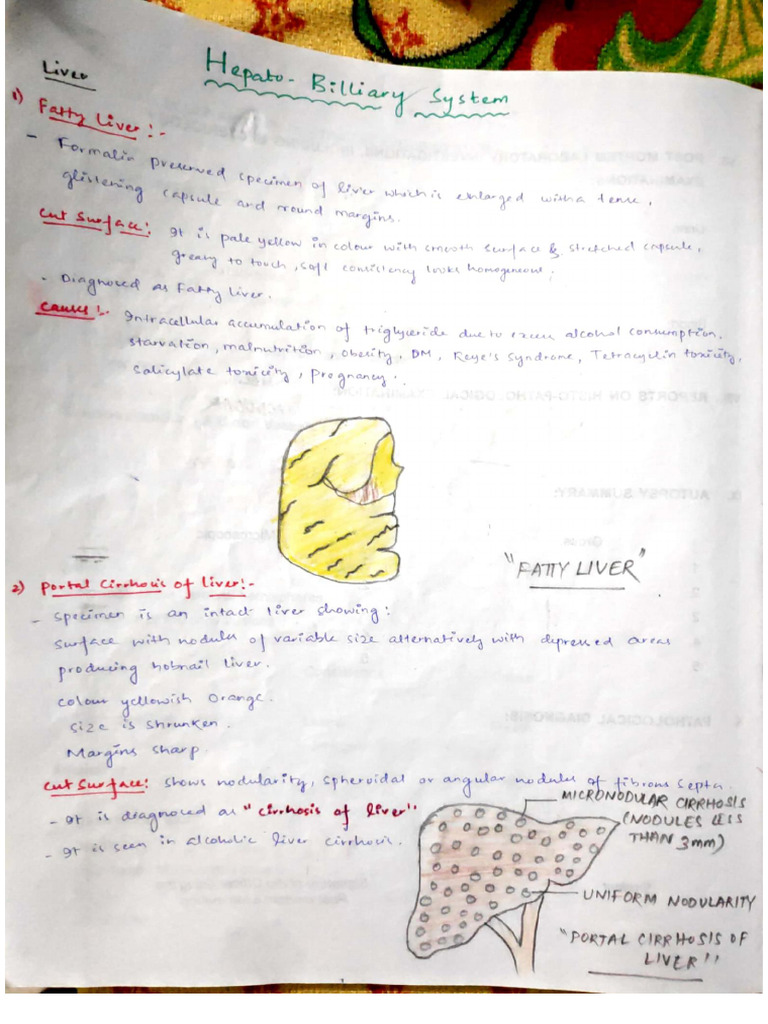 Hepato-Billiary System
Liver
1) Fatty Liver:-
- Formalin preserved specimen of liver which is enlarged with a tense,
glistening capsule and round margins.
Cut Surface: It is pale yellow in colour with smooth surface & stretched capsule,
greasy to touch, soft consistency looks homogeneous;
- Diagnosed as Fatty liver.
Causes:- Intracellular accumulation of triglyceride due to excess alcohol consumption,
starvation, malnutrition, obesity, DM, Reye's Syndrome, Tetracyclin toxicity,
Salicylate toxicity, pregnancy.
"FATTY LIVER"
2) Portal Cirrhosis of Liver:-
- Specimen is an intact liver showing:
Surface with nodules of variable size alternatively with depressed areas
producing hobnail liver.
Colour yellowish orange.
Size is shrunken.
Margins sharp.
Cut Surface: shows nodularity, spheroidal or angular nodules of fibrous septa.
- It is diagnosed as "cirrhosis of liver"
- It is seen in alcoholic liver cirrhosis.
MICRONODULAR CIRRHOSIS
(NODULES LESS
THAN 3mm)
UNIFORM NODULARITY
"PORTAL CIRRHOSIS OF
LIVER"